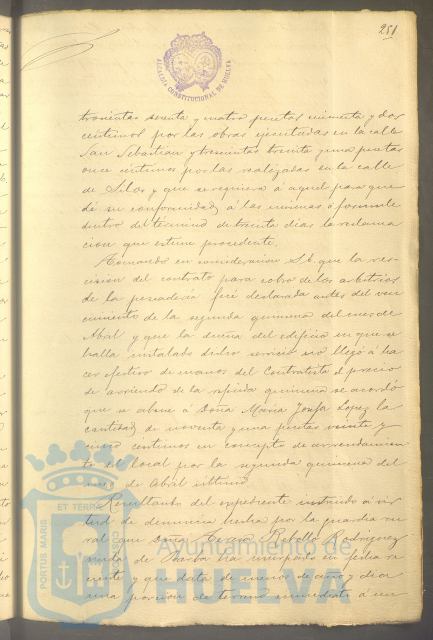 251
ALCALDIA CONSTITUCIONAL DE HUELVA
trocientas sesenta y cuatro pesetas cincuenta y dos
céntimos por las obras ejecutadas en la calle
San Sebastian y trescientas treinta y una pesetas
once céntimos por las realizadas en la calle
de Silos y que se requiera á aquel para que
dé su conformidad á las mismas ó formule
dentro del término de treinta dias la reclama
cion que estime procedente.
Tomando en consideracion S.E. que la res-
cision del contrato para cobro de los arbitrios
de la pescaderia fué declarada antes del ven
cimiento de la segunda quincena del mes de
Abril y que la dueña del edificio en que se
halla instalado dicho servicio no llegó á ha
cer efectivo de manos del Contratista el precio
de arriendo de la repetida quincena se acordó
que se abone á Doña Maria Josefa Lopez la
cantidad de noventa y una pesetas veinte y
cinco céntimos en concepto de arrendamien
to del local por la segunda quincena del
mes de Abril último.
Resultando del expediente instruido á vir
tud de denuncia hecha por la guardia ru
ral que Doña Teresa Rebollo Rodriguez
viuda de Barba ha
y que data de menos de año y dia
una porcion de terreno inmediato á un
PORTUS MARIS ET TERRAE
Ayuntamiento de
HUELVA